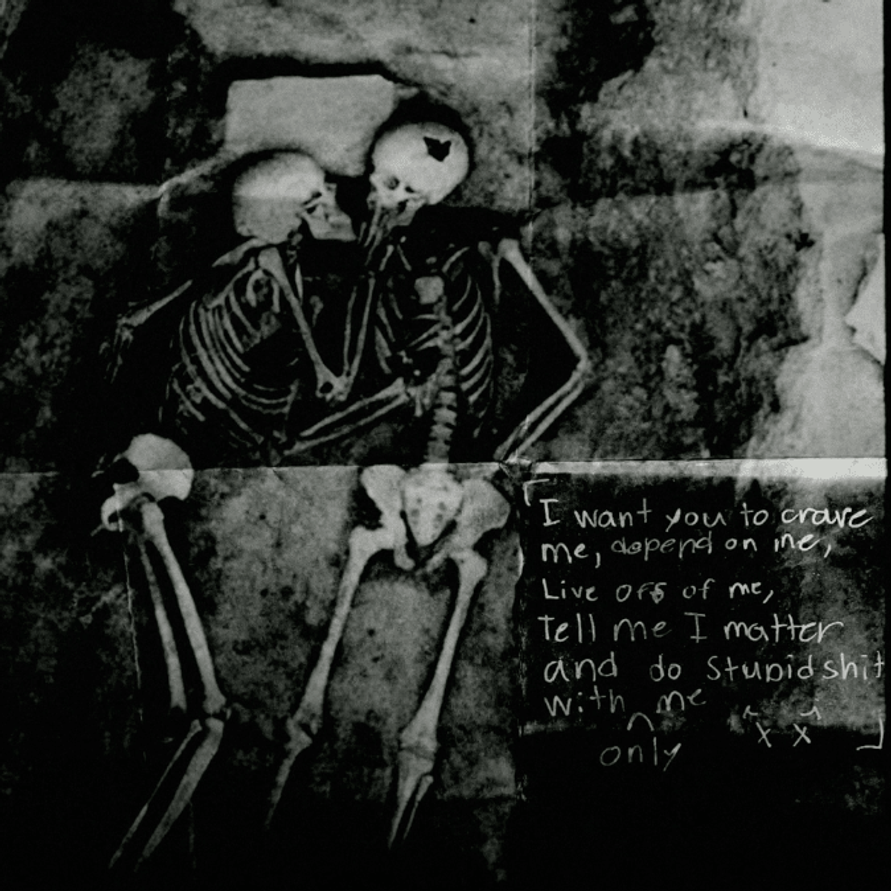 I want you to crave
me, depend on me,
Live off of me,
tell me I matter
and do stupid shit
with ^ me
only
x x